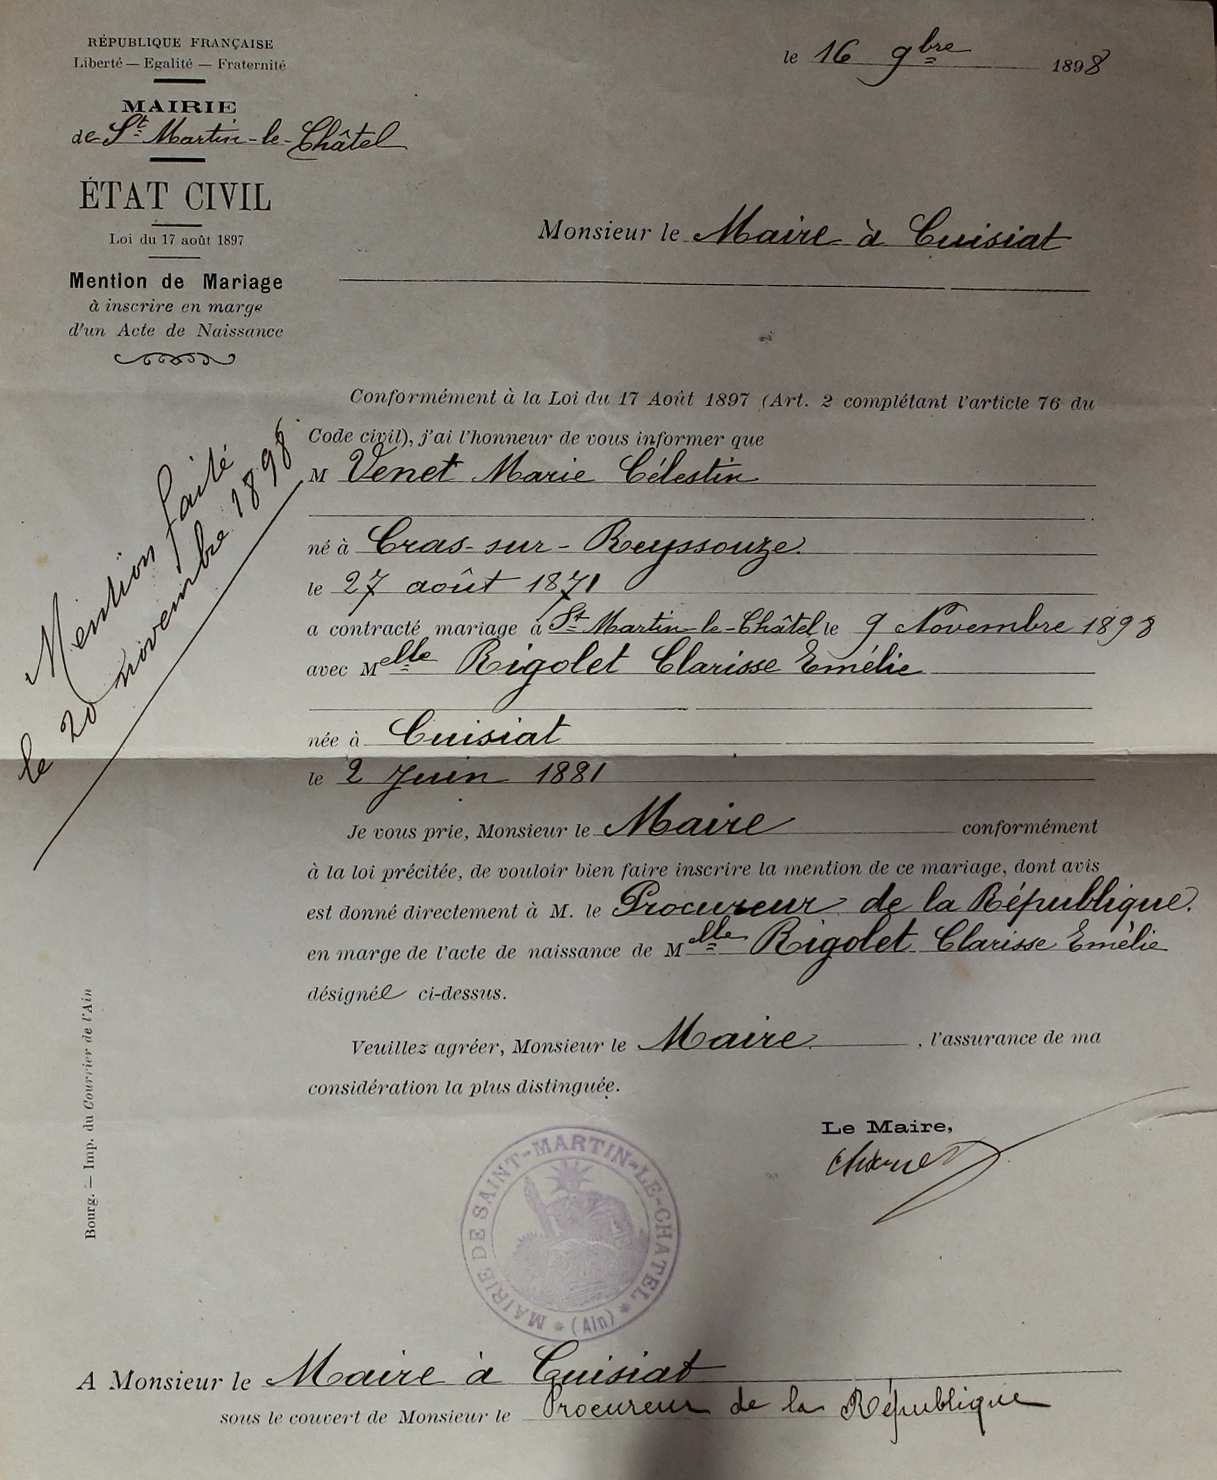 RÉPUBLIQUE FRANÇAISE
Liberté — Egalité — Fraternité
le 16 9bre 1898
MAIRIE
de St Martin-le-Châtel
ÉTAT CIVIL
Loi du 17 août 1897
Mention de Mariage
à inscrire en marge
d'un Acte de Naissance
Monsieur le Maire à Cuisiat
Conformément à la Loi du 17 Août 1897 (Art. 2 complétant l'article 76 du
Code civil), j'ai l'honneur de vous informer que
M Venet Marie Célestin
né à Cras-sur-Reyssouze
le 27 août 1871
a contracté mariage à St Martin-le-Châtel le 9 Novembre 1898
avec Melle Rigolet Clarisse Emélie
née à Cuisiat
le 2 Juin 1881
Mention faite
le 20 novembre 1898
Je vous prie, Monsieur le Maire conformément
à la loi précitée, de vouloir bien faire inscrire la mention de ce mariage, dont avis
est donné directement à M. le Procureur de la République.
en marge de l'acte de naissance de Melle Rigolet Clarisse Emélie
désignée ci-dessus.
Veuillez agréer, Monsieur le Maire, l'assurance de ma
considération la plus distinguée.
Le Maire,
MAIRIE DE SAINT-MARTIN-LE-CHATEL * (Ain) *
Bourg. — Imp. du Courrier de l'Ain
A Monsieur le Maire à Cuisiat
sous le couvert de Monsieur le Procureur de la République